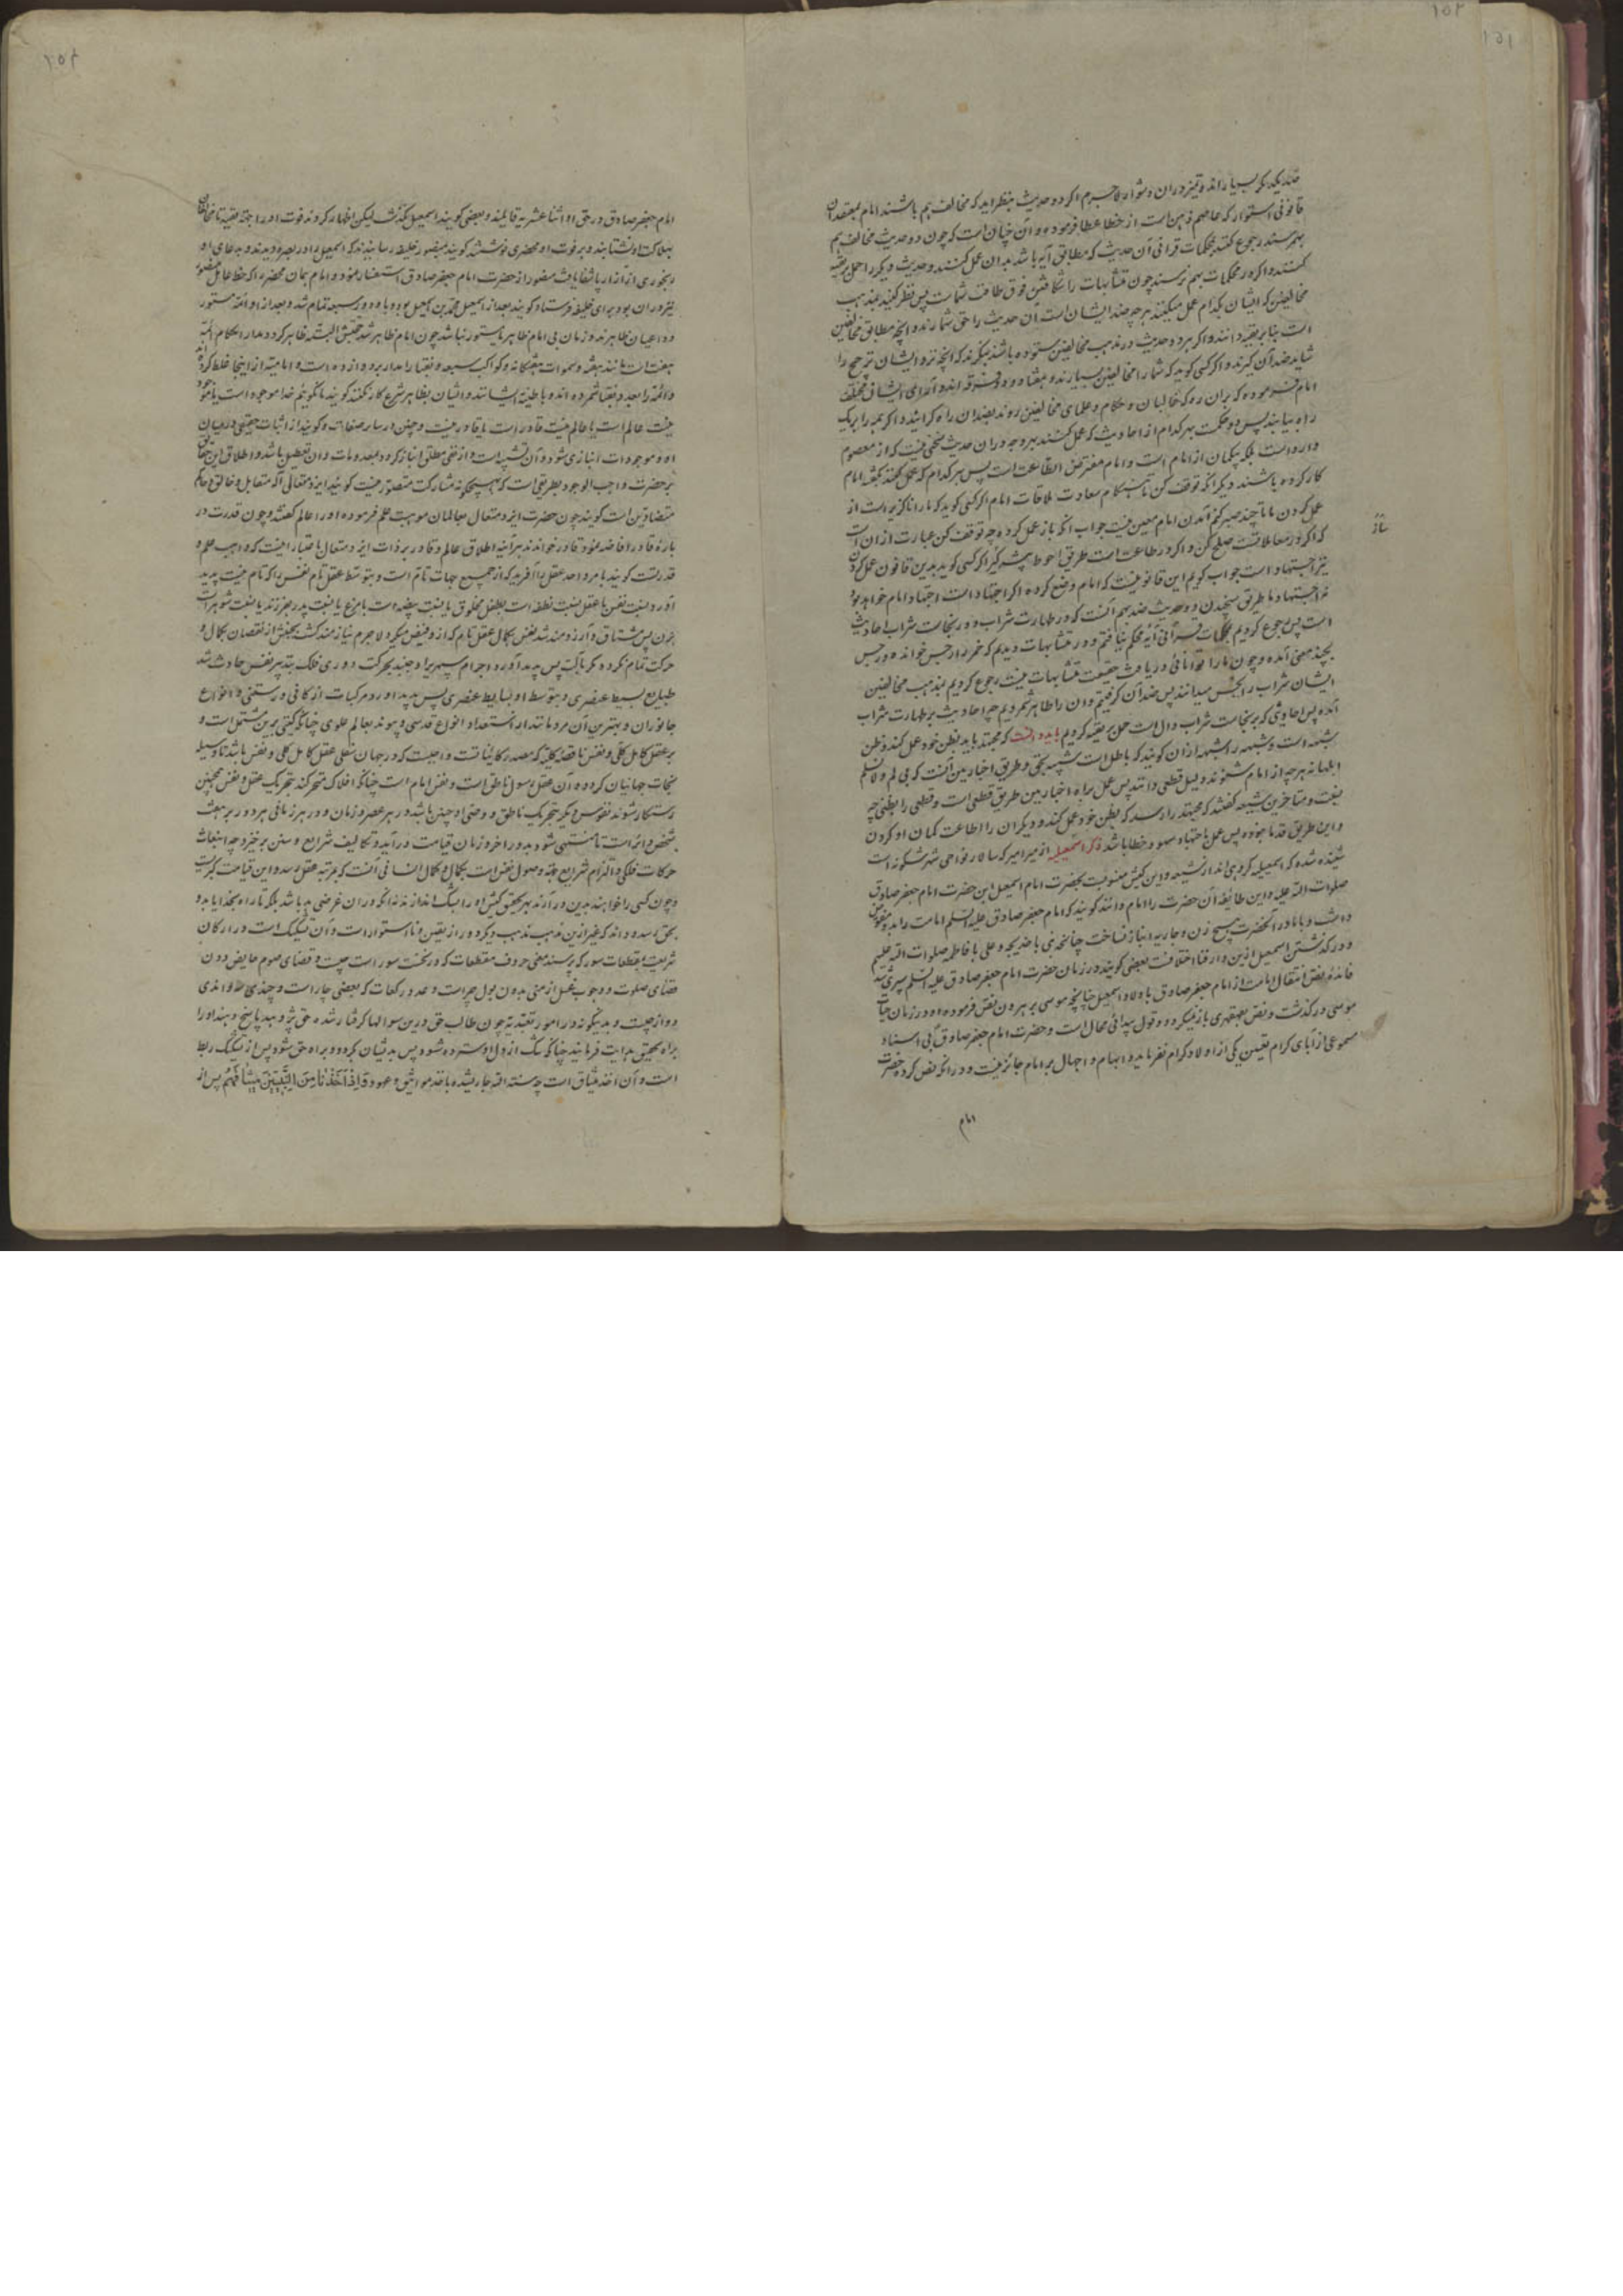 ضد یکدیگر بسیار اند و تمیز در ان دشوار لاجرم اگر دو حدیث بنظر اید که مخالف هم باشند امام بمعتقدان
قانونی استوار که عاصم ذهن است از خطا عطا فرموده و آن چنان است که چون دو حدیث مخالف هم
بهم رسند رجوع کنند بمحکمات قرانی آن حدیث که مطابق آیه باشد بدان عمل کنند و حدیث دیگر را حمل بر تقیه
کنند و اگر در محکمات بهم نرسند چون متشابهات را شکافتن فوق طاقت شماست پس نظر کنید بمذهب
مخالفین که ایشان بکدام عمل میکنند هر چه ضد ایشان است آن حدیث را حق شمارند و آنچه مطابق مخالفین
است بنابر تقیه دانند و اگر هر دو حدیث در مذهب مخالفین ستوده باشند بنگرند که آنچه نزد ایشان ترجیح را
شاید ضد آن گیرند و اگر کسی گوید که شمار مخالفین بسیارند و هفتاد و دو فرقه اند و آرای ایشان مختلف
امام فرموده که بران ره که غالبان و حکام و علمای مخالفین روند بضد ان راه گرایند و اگر همه را بر یک
راه بیابند پس دو حکمت بهر کدام از احادیث که عمل کنند بهر وجه در ان حدیث سخنی نیست که از معصوم
وارد است بلکه بیگمان از امام است و امام مفترض الطاعت است پس بهر کدام که عمل کنند بگفته امام
کار کرده باشند دیگر آنکه توقف کن تا بهنگام سعادت ملاقات امام اگر کسی گوید که ما را ناگزیر است از
عمل کردن ما تا چند صبر کنیم آمدن امام معین نیست جواب آنکه باز عمل کرده چه توقف کن عبارت از ان است
که اگر در معاملاتست صلح کن و اگر در طاعت است طریق احوط پیش گیر اگر کسی گوید بدین قانون عمل کردن
نیز اجتهاد است جواب گوئیم این قانونیست که امام وضع کرده اگر اجتهاد است اجتهاد امام خواهد بود
نه اجتهاد ما طریق سنجیدن دو حدیث ضد بهم آنست که در طهارت شراب و در نجاست شراب احادیث
است پس رجوع کردیم بمحکمات قرآنی آیه محکم نیافتیم و در متشابهات دیدیم که خمر را رجس خوانده و رجس
بچند معنی آمده و چون ما را توانائی دریافت حقیقت متشابهات نیست رجوع کردیم بمذهب مخالفین
ایشان شراب را نجس میدانند پس ضد آن گرفتیم و ان را طاهر شمردیم چه احادیث بر طهارت شراب
آمده پس احادیثی که بر نجاست شراب دال است حمل بر تقیه کردیم باید دانست که مجتهد باید بظن خود عمل کند و ظن
شبهه است و شبهه را شبهه ازان گویند که باطل است شبیه بحق و طریق اخباریین آنست که بی لم و لا نسلم
ابلهانه هر چه از امام شنوند دلیل قطعی دانند پس عمل براه اخباریین طریق قطعی است و قطعی را بظنی چه
نسبت و متاخرین شیعه گفتند که مجتهد را رسد که بظن خود عمل کند و دیگران را اطاعت گمان او کردن
و این طریق قدما نبوده پس عمل باجتهاد سهو و خطا باشد ذکر اسمعیلیه از میر امیر که سالار نواحی شهر شکونه است
شنیده شده که اسمعیلیه گروهی اند از شیعه و این کیش منسوبست بحضرت امام اسمعیل ابن حضرت امام جعفر صادق
صلوات الله علیه و این طایفه آن حضرت را امام دانند گویند که امام جعفر صادق علیه السلم امامت را بدو مفوض
داشت و با مادر آنحضرت هیچ زن و جاریه انباز نساخت چنانچه نبی با خدیجه و علی با فاطمه صلوات الله علیهم
و در گذشتن اسمعیل ازین دار فنا اختلافست بعضی گویند در زمان حضرت امام جعفر صادق علیه السلم سپری شد
فائده نص انتقال امامت از امام جعفر صادق باولاد اسمعیل چنانچه موسی بر هرون نص فرموده و او در زمان حیات
موسی در گذشت و نص بقهقری باز نمیگردد و قول ببدائی محال است و حضرت امام جعفر صادق بی اسناد
مسموعی از آبای کرام تعیین یکی از اولاد کرام نفرماید و ابهام و اجهال بر امام جائز نیست و در آنکه نص کرده حضرت
امام
امام جعفر صادق در حق او اثنا عشریه قایلند و بعضی گویند اسمعیل نگذشت لیکن اظهار کردند فوت او را بجهة تقیه تا مخالفان
بهلاکت او نشتابند و بر فوت او محضری نوشتند گویند بمنصور خلیفه رسانیدند که اسمعیل را در بصره دیدند و بدعای او
رنجوری از آزار پا شفا یافت منصور از حضرت امام جعفر صادق استفسار نمود و امام همان محضر را که خط عامل منصور
نیز دران بود برای خلیفه فرستاد گویند بعد از اسمعیل محمد بن اسمعیل بود و با او دور سبعه تمام شد و بعد از او ائمه مستور
و داعیان ظاهرند و زمان بی امام ظاهر یا مستور نباشد چون امام ظاهر شد حجتش البته ظاهر گردد و مدار احکام ائمه
بهفت است مانند هفته و سموات هفتگانه و کواکب سبعه و نقبا را مدار بر دوازده است و امامیه از اینجا غلط کرده اند
و ائمه را بعدد نقبا شمرده اند و باطنیه ایشانند و ایشان بظاهر شرع کار نکنند گویند ما نگوئیم خدا موجود است یا موجود
نیست عالم است یا عالم نیست قادر است یا قادر نیست و چنین در سایر صفات و گویند از اثبات حقیقی در میان
او و موجودات انبازی شود و آن تشبیه است و از نفی مطلق انباز گردد بمعدومات و ان تعطیل باشد و اطلاق این حقایق
بر حضرت واجب الوجود بطریقی است که بهیچگونه مشارکت متصور نیست گویند ایزد متعالی آله متقابل و خالق و حاکم
متضادین است گویند چون حضرت ایزد متعال بعالمان موهبت علم فرموده اورا عالم گفتند و چون قدرت در
باره قادر افاضه نمود قادر خواندند هرآینه اطلاق عالم و قادر بر ذات ایزد متعال باعتبار اینست که واهب علم و
قدرتست گویند بامر واحد عقل را آفرید که از جمیع جهات تام است و بتوسط عقل تام نفس را که تام نیست پدید
آورد نسبت نفس با عقل نسبت نطفه است بطفل مخلوق یا نسبت بیضه است با مرغ یا نسبت پدر بفرزند یا نسبت شوهر است
بزن پس مشتاق و آرزومند شد نفس بکمال عقل تام که از و فیض میگیرد لاجرم نیازمند گشت بجنبش از نقصان بکمال و
حرکت تمام نگردد مگر بآلت پس پدید آورد اجرام سپهریرا و جنبید بحرکت دوری فلک بتدبیر نفس حادث شد
طبایع بسیط عنصری و بتوسط او بسایط عنصری پس پدید اورد مرکبات از کانی و رستنی و انواع
جانوران و بهترین آن مردمانند از استعداد انوار قدسی و پیوند بعالم علوی چنانکه گیتی برین مشتمل است و
بر عقل کامل کلی و نفس ناقصه کلیه که مصدر کایناتست واجبست که در جهان سفلی عقل کامل کلی و نفس باشد تا وسیله
نجات جهانیان گردد و آن عقل رسول ناطق است و نفس امام است چنانکه افلاک متحرکند بتحریک عقل و نفس همچنین
رستگار شوند نفوس دیگر بتحریک ناطق و وصی او چنین باشد در هر عصر و زمان و در هر زمانی هر دور بر هفت
شخص دائر است تا منتهی شود بدور اخر و زمان قیامت در آید و تکالیف شرایع و سنن برخیزد چه انبعاث
حرکات فلکی و التزام شرایع بجهة وصول نفس است بکمال و کمال انسانی آنست که بمرتبه عقل رسد و این قیامت کبریست
و چون کسی را خواهند بدین در آرند بهر تحقیق کیش او را بشک اندازند نه آنکه دران غرضی بد باشد بلکه تا راه بخدا یابد و
بحق رسد و داند که غیر ازین مذهب مذهب دیگر دور از یقین و نا استوار است و آن تشکیک است در ارکان
شریعت بمقطعات سور که پرسند معنی حروف مقطعات که در نخست سور است چیست و قضای صوم حایض دون
قضای صلوت و وجوب غسل از منی بدون بول چراست و عدد رکعات که بعضی چار است و چندی سه و اندی
دو از چیست و بدینگونه در امور تعبدیه چون طالب حق درین سوالها گرفتار شده حق پژوهد پاسخ دهند او را
براه تحقیق هدایت فرمایند چنانکه شک از دل او سترده شود پس بدیشان گرود و براه حق شود پس از تشکیک ربط
است و آن اخذ میثاق است چه سنته الله جار یشده باخذ مواثیق و عهود وَاِذْ اَخَذْنَا مِنَ النَّبِیّینَ مِیثَاقَهُمْ پس از